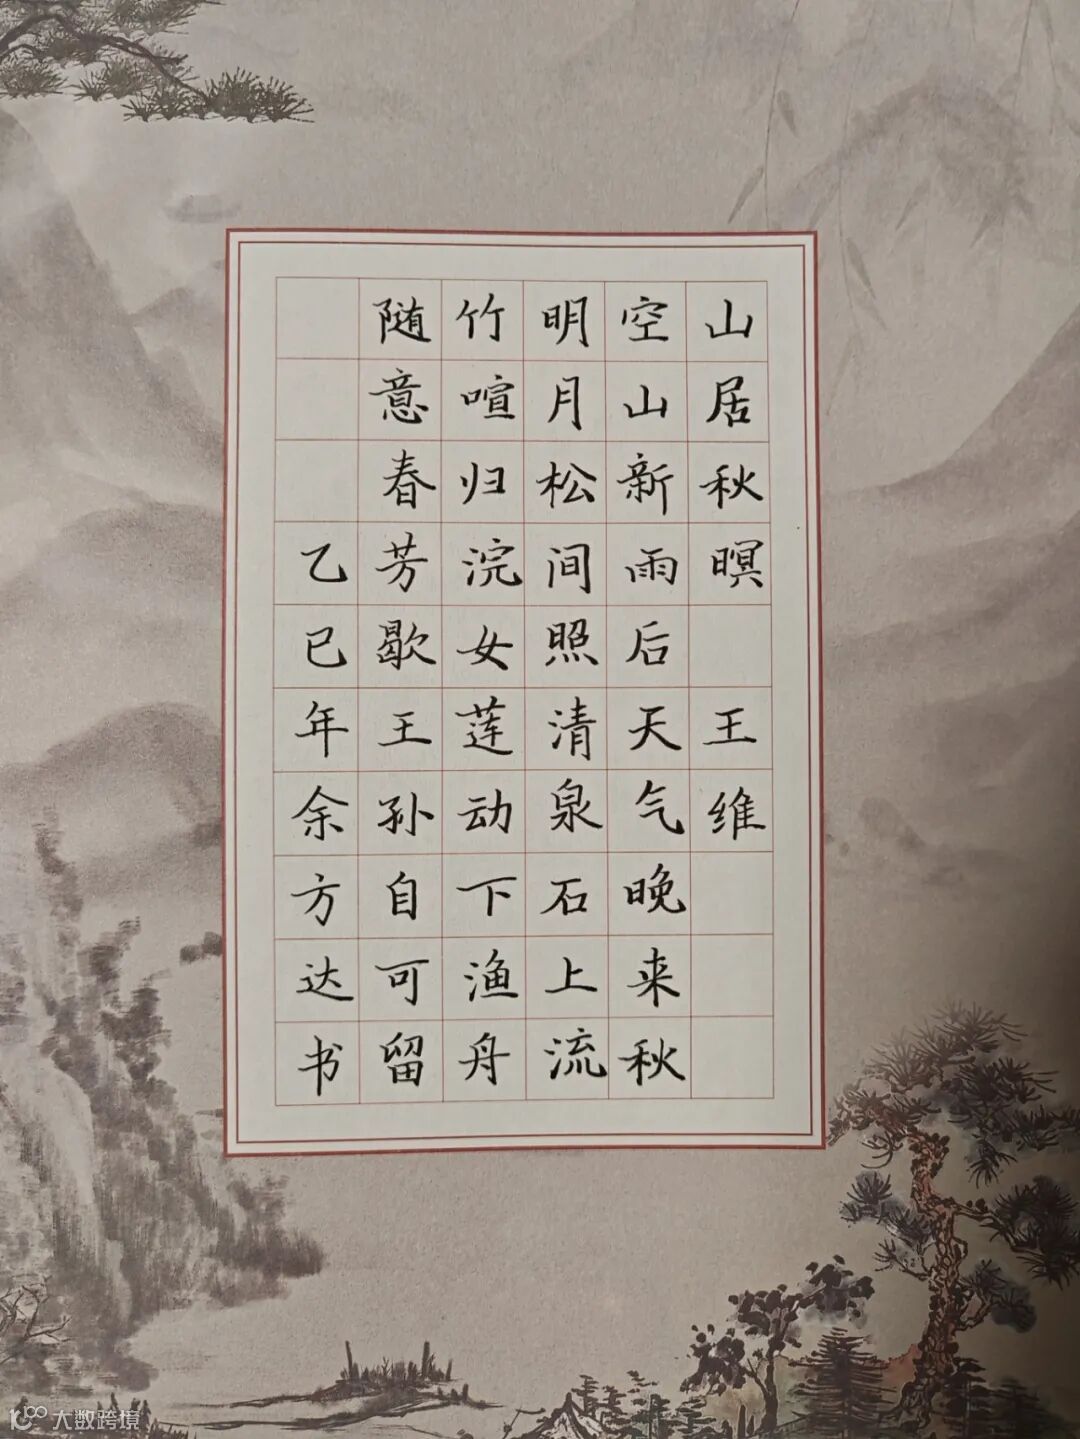 山居秋暝 王维
空山新雨后天气晚来秋
明月松间照清泉石上流
竹喧归浣女莲动下渔舟
随意春芳歇王孙自可留
乙巳年余方达书
大数跨境